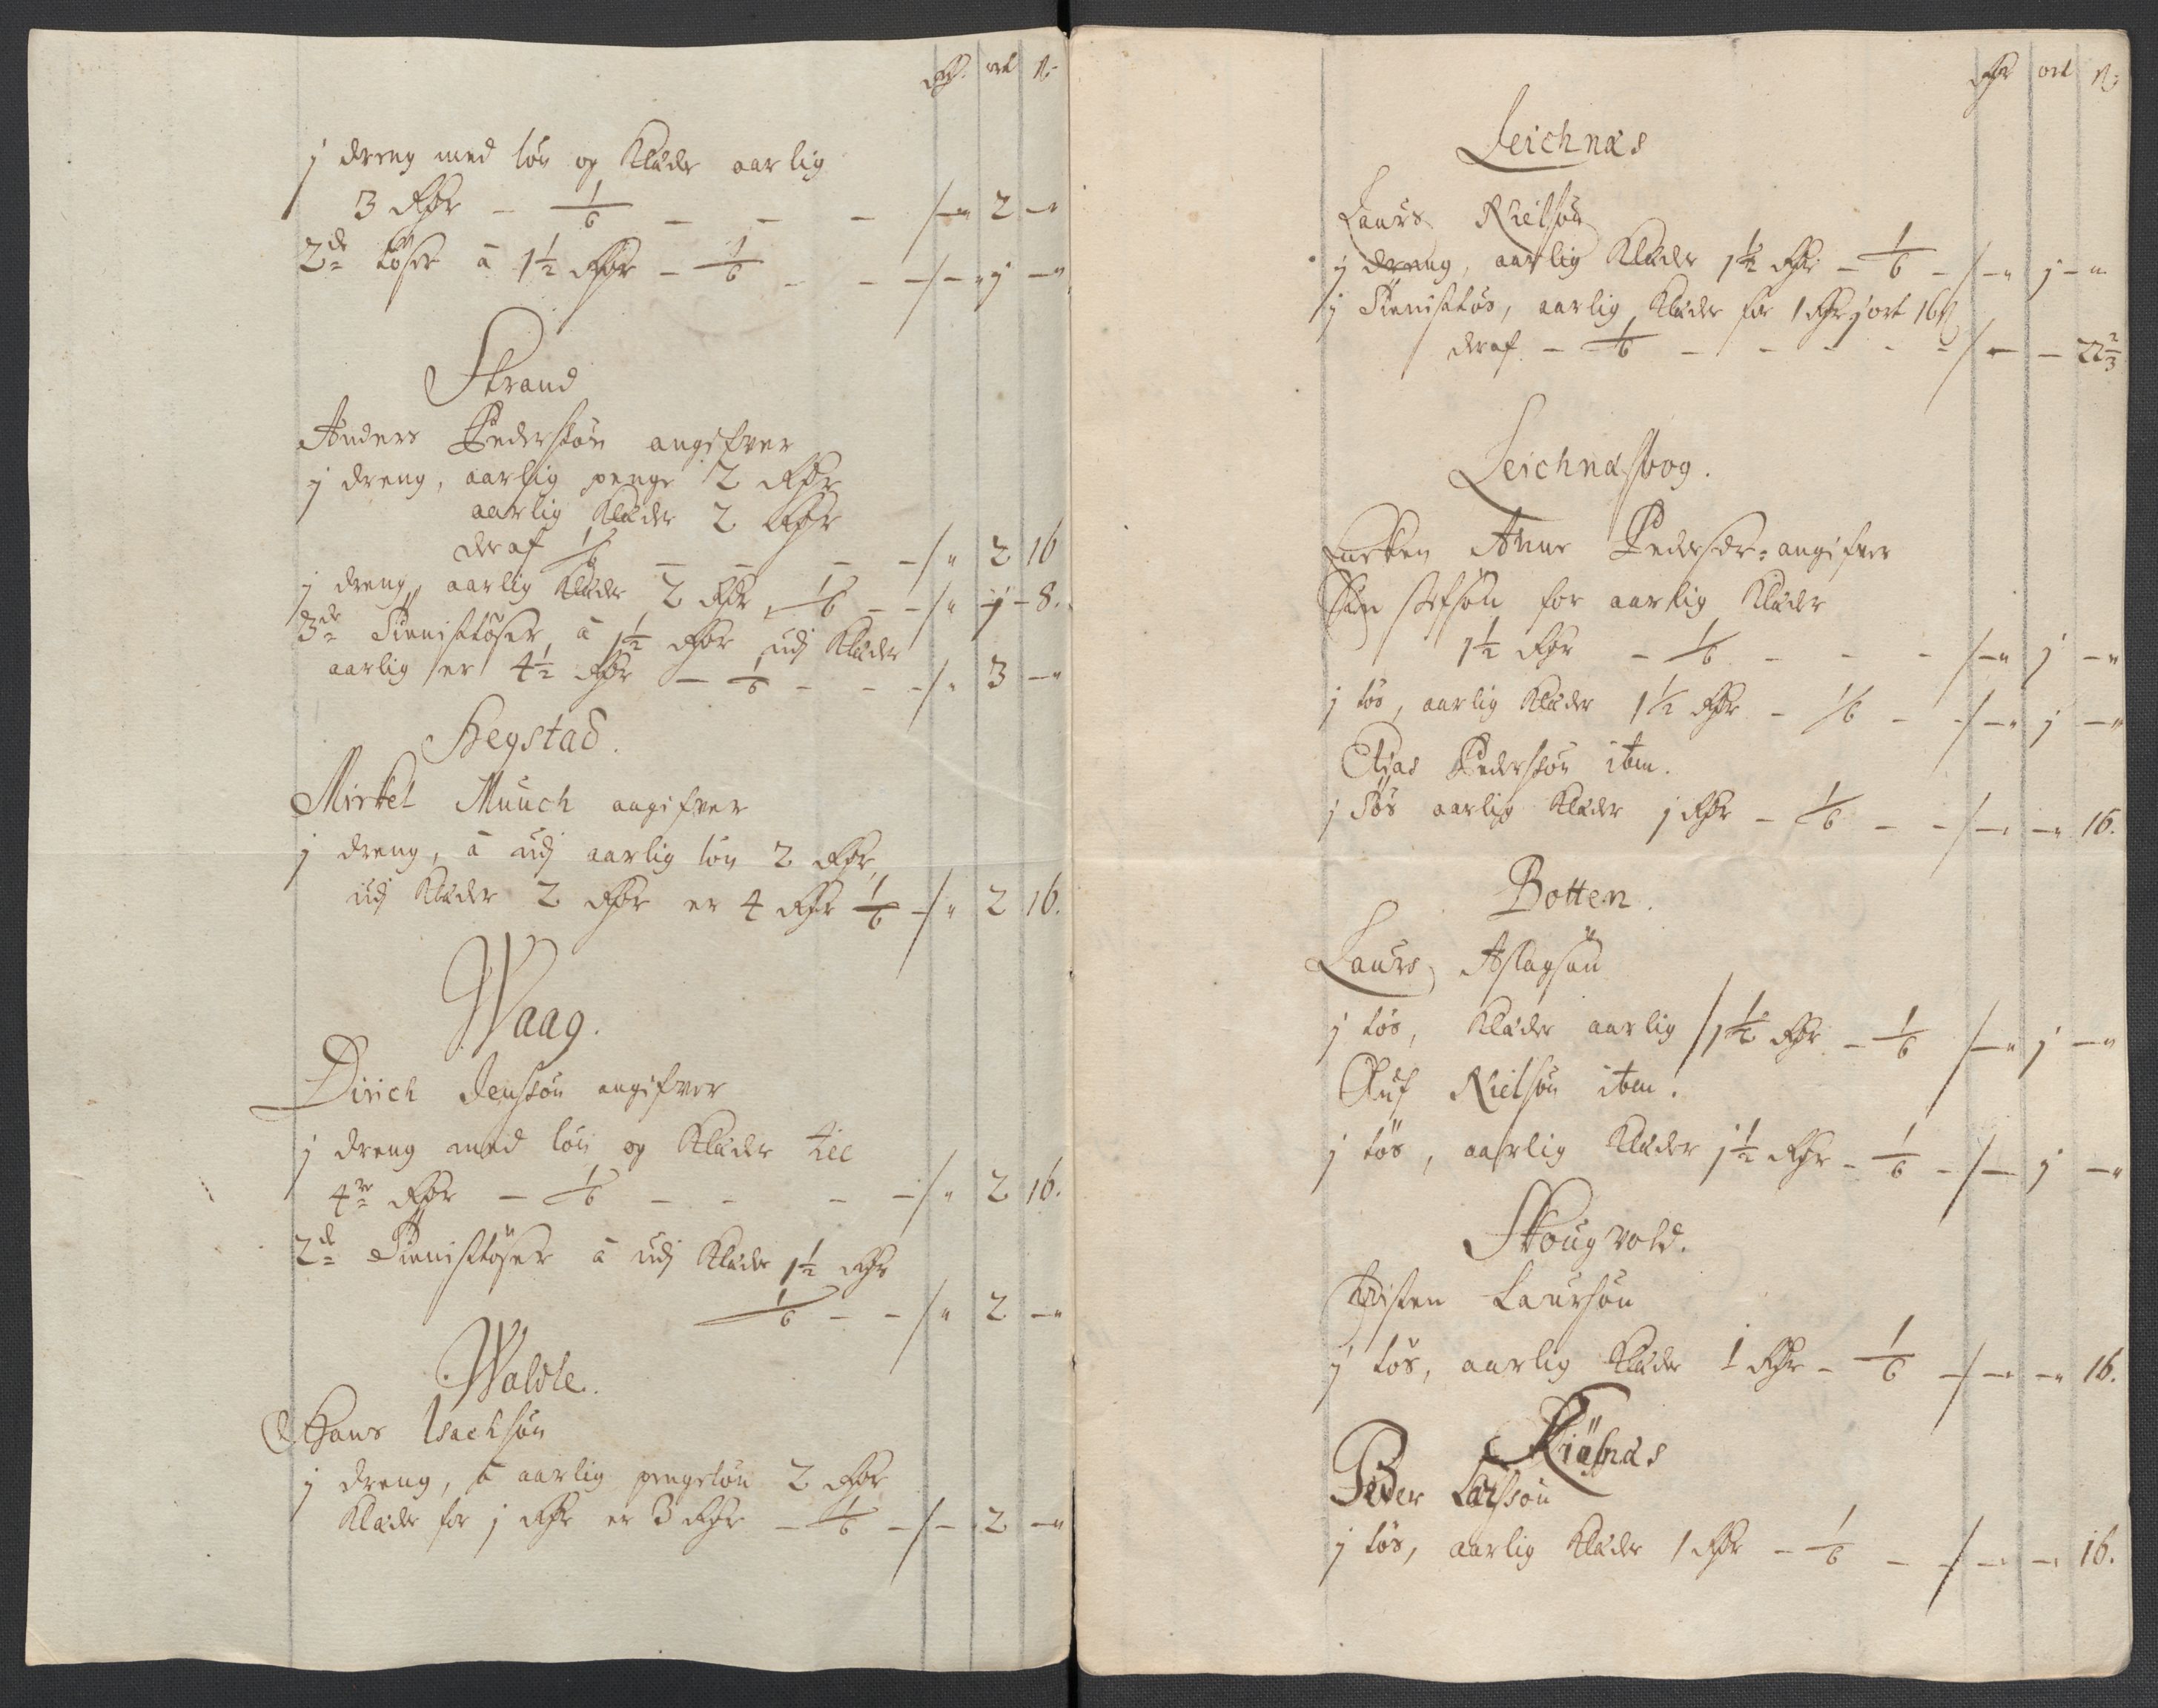 Rdr. ort ß
j dreng med løn og Klæder aarlig
3 Rdr - 1/6 - - - /-" 2 -"
2de tøser à 1 1/2 Rdr - 1/6 - - -/-" j -"
Strand
Anders Pedersøn angifver
j dreng, aarlig penge 2 Rdr
aarlig Klæder 2 Rdr
deraf 1/6 - - - -/" 2 16
j dreng, aarlig Klæder 2 Rdr 1/6 - -/" j - 8.
3de Tienistøser à 1 1/2 Rdr udj Klæder
aarlig er 4 1/2 Rdr - 1/6 - - -/" 3 -"
Hegstad.
Mickel Muuch angifver
j dreng, à udj aarlig løn 2 Rdr,
udj Klæder 2 Rdr er 4 Rdr 1/6 -/" 2 16.
Waag.
Dirich Jensøn angifver
j dreng med løn og Klæder til
4re Rdr - 1/6 - - - -/" 2 16.
2de Tienistøser à udj Klæder 1 1/2 Rdr
1/6 - - /" 2 -"
Waldle.
Hans Isachsøn
j dreng, à aarlig pengeløn 2 Rdr
Klæder for j Rdr er 3 Rdr - 1/6 -/- 2 -"
Rdr ort ß
Leichnæs
Laurs Nielsøn
j dreng, aarlig Klæder 1 1/2 Rdr - 1/6 - /-" j -"
j Tienistøs, aarlig Klæder for 1 Rdr j ort 16 ß
deraf - 1/6 - - - - -/- - 22 2/3
Leichnæskog.
Encken Anne Peders angifver
Sin stefsøn for aarlig Klæder
1 1/2 Rdr - 1/6 - - - /-" j -"
j tøs, aarlig Klæder 1 1/2 Rdr - 1/6 - -/-" j -"
Elias Pedersøn item.
j Tøs aarlig Klæder j Rdr - 1/6 - -/-" -" 16.
Botten.
Laurs Aslagsøn
j tøs, Klæder aarlig 1 1/2 Rdr - 1/6 /-" j -"
Oluf Nielsøn item.
j tøs, aarlig Klæder j 1/2 Rdr - 1/6 -/- j -"
Skougvold.
Christen Laursøn
j tøs, aarlig Klæder 1 Rdr - 1/6 -/-" -" 16.
Peder Larssøn
j tøs, aarlig Klæder 1 Rdr - 1/6 - -/-" -" 16.